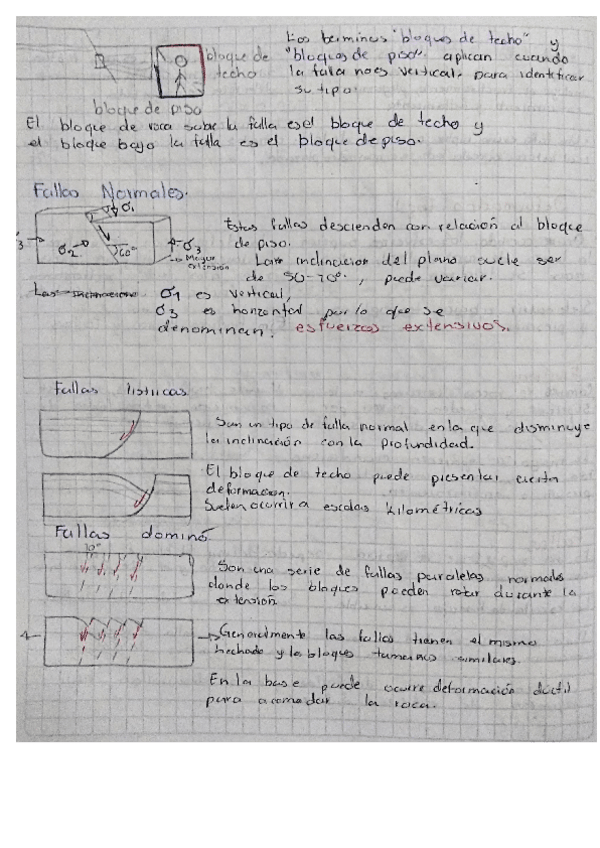 Los terminos "bloques de techo" y
"bloques de piso" aplican cuando
la falla no es vertical, para identificar
su tipo.
bloque de
techo
bloque de piso
El bloque de roca sobre la falla es el bloque de techo y
el bloque bajo la falla es el bloque de piso.
Fallas Normales.
σ1
σ3
σ2
60°
σ3
Mayor
extensión
Estas fallas descienden con relación al bloque
de piso.
La inclinacion del plano suele ser
de 50-70°, puede variar.
Las
σ1 es vertical,
σ3 es horizontal por lo que se
denominan: esfuerzos extensivos.
Fallas lístricas
Son un tipo de falla normal en la que disminuye
la inclinación con la profundidad.
El bloque de techo puede presentar cierta
deformacion.
Suelen ocurrir a escalas kilométricas
Fallas dominó
10°
Son una serie de fallas paralelas normales
donde los bloques pueden rotar durante la
extensión
Generalmente las fallas tienen el mismo
hechado y los bloques tamaños similares.
En la base puede ocurrir deformación dúctil
para acomodar la roca.